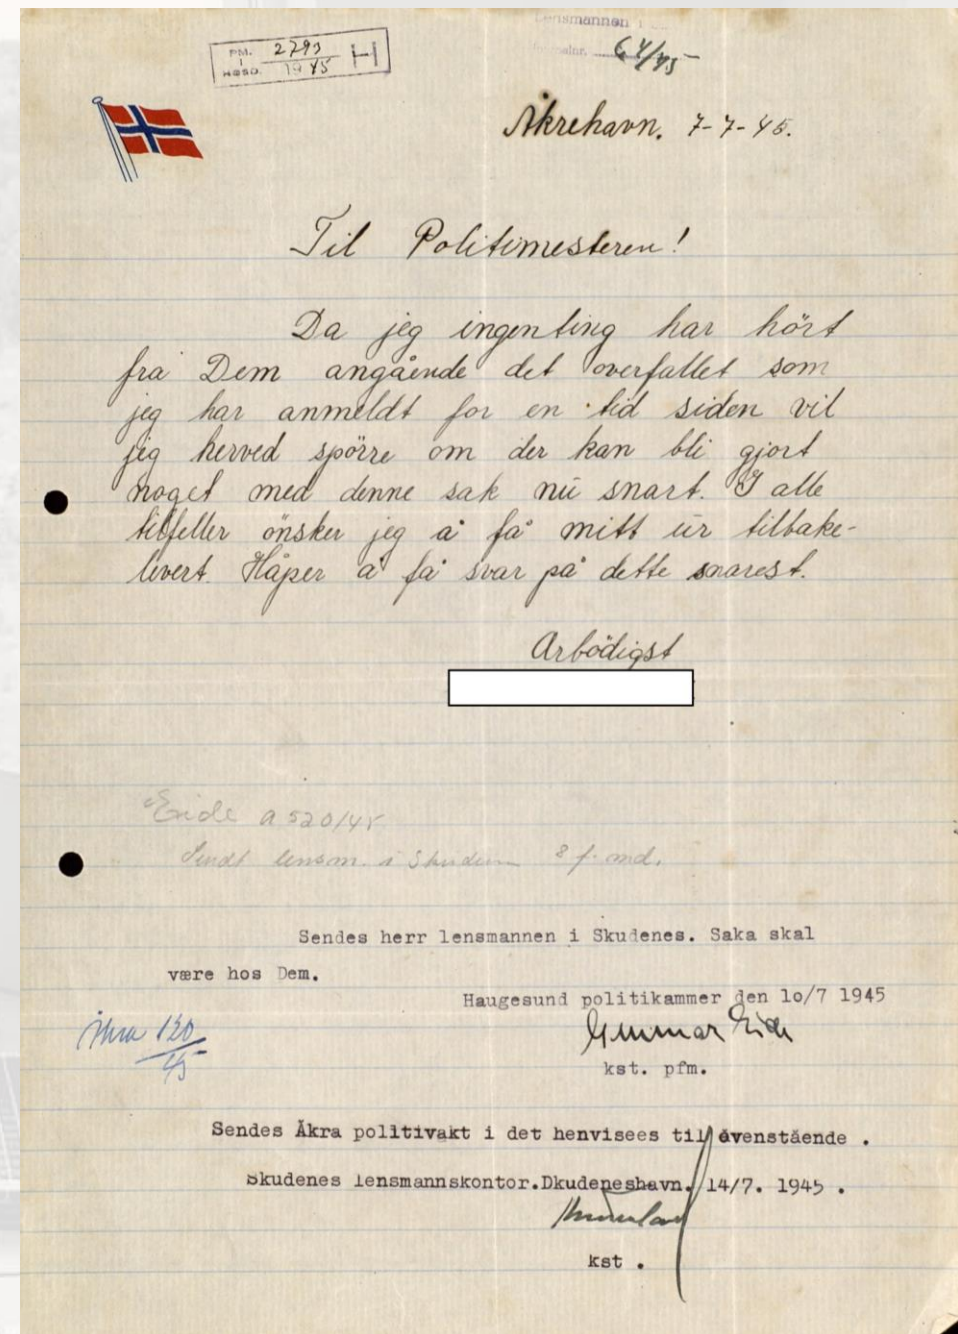 PM. 2793 H
I
HGSD. 1945
Lensmannen i
Journalnr. 64/45
Åkrehavn. 7-7-45.
Til Politimesteren!
Da jeg ingenting har hört
fra Dem angående det overfallet som
jeg har anmeldt for en tid siden vil
jeg herved spörre om der kan bli gjort
noget med denne sak nu snart. I alle
tilfeller önsker jeg å få mitt ur tilbake-
levert. Håper å få svar på dette snarest.
Arbödigst
Eide a 520/45
Sendt lensm. i Skudenes 8 f. md.
Sendes herr lensmannen i Skudenes. Saka skal
være hos Dem.
Haugesund politikammer den 1o/7 1945
Gunnar Eide
kst. pfm.
Åkra 120
45
Sendes Åkra politivakt i det henvisees til ovenstående .
Skudenes lensmannskontor.Dkudeneshavn. 14/7. 1945 .
kst .